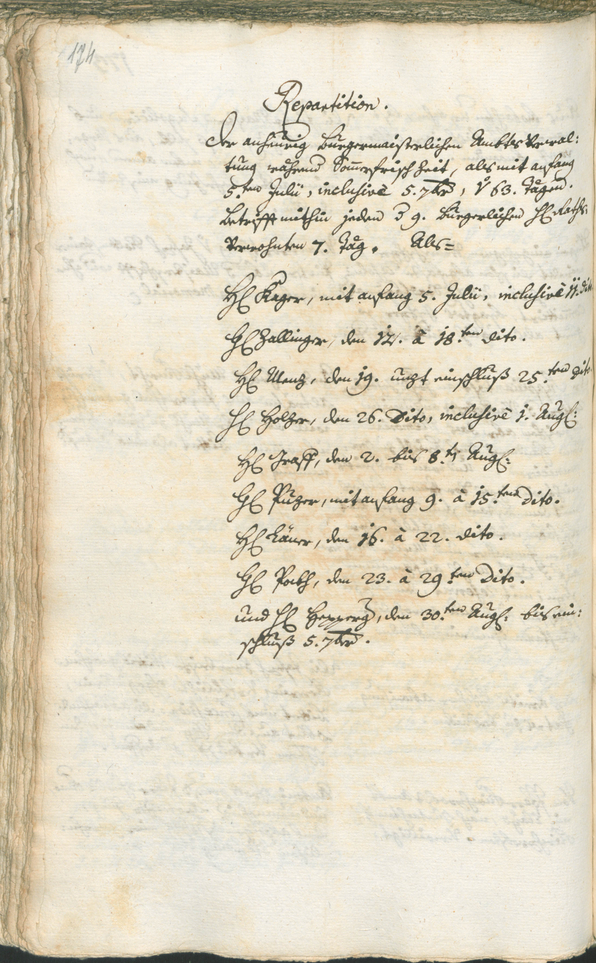 174
Repartition.
Der anheurig Burgermaisterlichen Ambts Verwal:
tung während Sommerfrisch Zeit, als mit anfang
5.ten Julii, inclusive 5. 7br, 63. Tagen.
Betrifft mithin jeden 9. Burgerlichen H: Raths
Verwohnten 7. Täg. Als=
H: Kager, mit anfang 5. Julii, inclusive 11. dito
H: Zallinger, den 12. à 18.ten dito.
H: Menz, den 19. einschluß 25.ten dito
H: Holzer, den 26. Dito, inclusive 1. Aug:
H: Graff, den 2. bis 8.t Aug:
H: Puzer, mit anfang 9. à 15.ten Dito.
H: den 16. à 22. dito.
H: den 23. à 29.ten Dito.
und H: Hepperg, den 30.ten Aug: bis ein:
schluß 5. 7br.